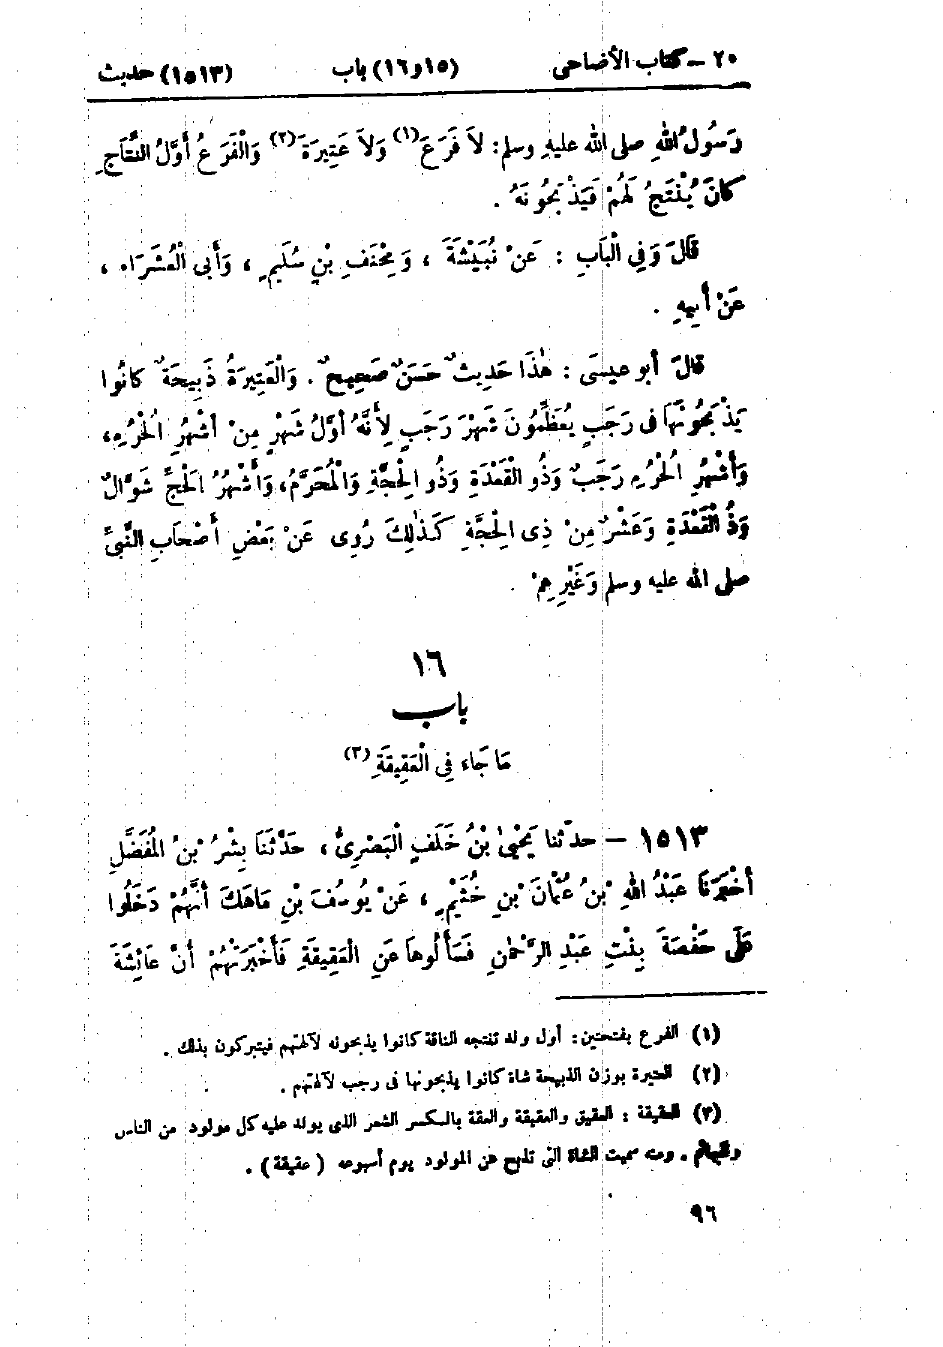 ٢٠ – كتاب الأضاحى (١٥و١٦) باب (١٥١٣) حديث
رَسُولُ اللهِ صلى الله عليهِ وسلم: لَا فَرَعَ(١) وَلَا عَتِيرَةَ(٢) وَالْفَرَعُ أَوَّلُ النِّتَاجِ
كانَ يُنْتَجُ لَهُمْ فَيَذْبَحُونَهُ .
قَالَ وَفِي الْبَابِ : عَنْ نُبَيْشَةَ ، وَمِخْنَفِ بْنِ سُلَيمٍ ، وَأَبى الْعُشَرَاء ،
عَنْ أَبِيهِ .
قالَ أبو عيسَى : هٰذَا حَدِيثٌ حَسَنٌ صَحِيحٌ . وَالْعَتِيرَةُ ذَبِيحَةٌ كانُوا
يَذْبَحُونَهَا فى رَجَبٍ يُعَظِّمُونَ شَهْرَ رَجَبٍ لِأَنَّهُ أَوَّلُ شَهْرٍ مِنْ أَشْهُرِ الْحُرُمِ،
وَأَشْهُرِ الْحُرُمِ رَجَبٌ وَذُو الْقَعْدَةِ وَذُو الْحِجَّةِ وَالْمُحَرَّمُ، وَأَشْهُرُ الْحَجِّ شَوَّالٌ
وَذُو الْقَعْدَةِ وَعَشْرٌ مِنْ ذِى الْحِجَّةِ كَذٰلِكَ رُوِى عَنْ بَعْضِ أَصْحَابِ النَّبىِّ
صلى الله عليه وسلم وَغَيْرِهِمْ .
١٦
باب
مَا جَاء فِى الْعَقِيقَةِ(٣)
١٥١٣ – حدّثنا يَحْيىٰ بْنُ خَلَفٍ الْبَصْرِىُّ ، حَدَّثَنَا بِشْرُ بْنُ الْمُفَضَّلِ
أَخْبَرَنَا عَبْدُ اللهِ بْنُ عُثْمَانَ بْنِ خُثَيْمٍ ، عَنْ يُوسُفَ بْنِ مَاهَكَ أَنَّهُمْ دَخَلُوا
عَلَى حَفْصَةَ بِنْتِ عَبْدِ الرَّحْمٰنِ فَسَأَلُوهَا عَنِ الْعَقِيقَةِ فَأَخْبَرَتْهُمْ أَنَّ عَائِشَةَ
(١) الفرع بفتحتين: أول ولد تنتجه الناقة كانوا يذبحونه لآلهتهم فيتبركون بذلك .
(٢) العتيرة بوزن الذبيحة شاة كانوا يذبحونها فى رجب لآلهتهم .
(٣) العقيقة : العقيق والعقيقة والعقة بالكسر الشعر الذى يولد عليه كل مولود من الناس
والبهائم . ومنه سميت الشاة التى تذبح عن المولود يوم أسبوعه ( عقيقة ) .
٩٦